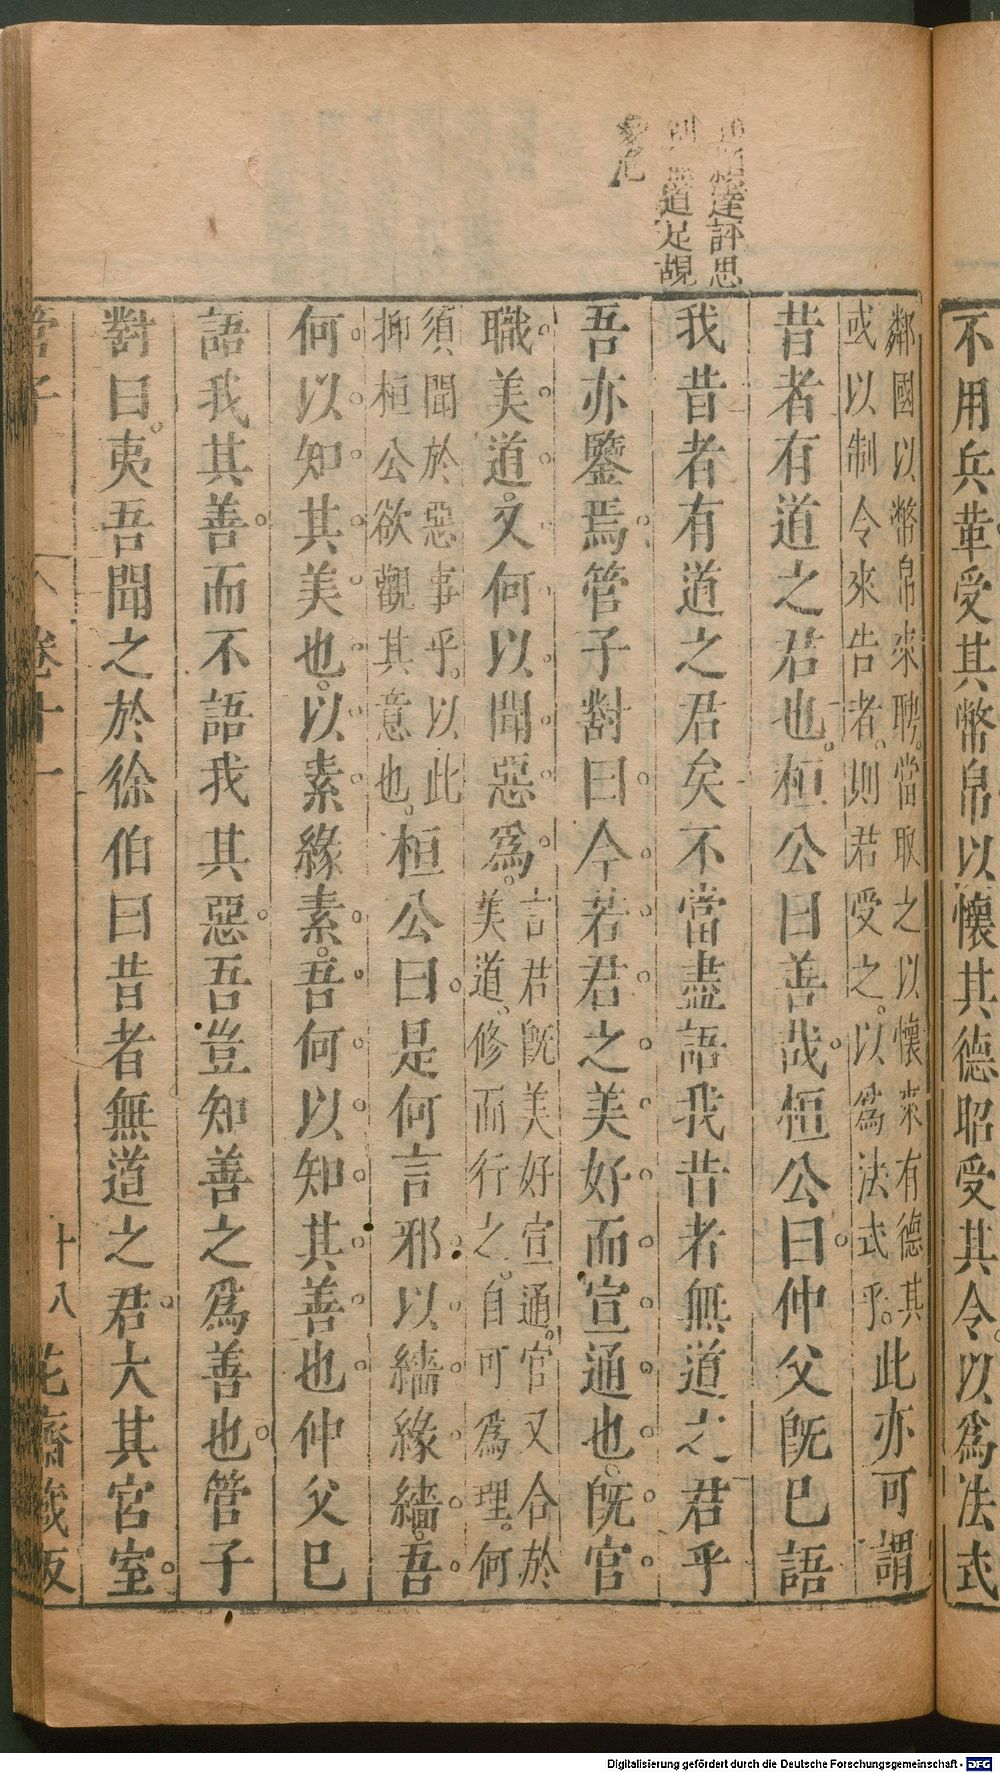 不用兵革受其幣帛以懷其德昭受其令以爲法式
鄰國以幣帛來聘當取之以懷來有德其
或以制令來告者則君受之以爲法式乎
此亦可謂
昔者有道之君也桓公曰善哉桓公曰仲父旣已語
我昔者有道之君矣不當盡語我昔者無道之君乎
吾亦鑒焉管子對曰今若君之美好而宣通也旣官
職美道又何以聞惡爲
言君旣美好宣通官又合於
美道修而行之自可爲理何
須聞於惡事乎以此
抑桓公欲觀其意也
桓公曰是何言邪以繬緣繬吾
何以知其美也以素緣素吾何以知其善也仲父已
語我其善而不語我其惡吾豈知善之爲善也管子
對曰夷吾聞之於徐伯曰昔者無道之君大其宮室
管子
卷十一
十八
花齋藏板
達評思
道足覘